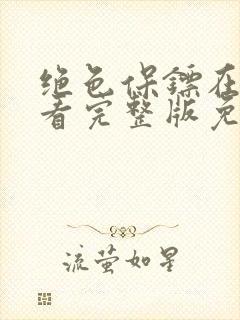 绝色保镖在
看完整版免
流萤如星